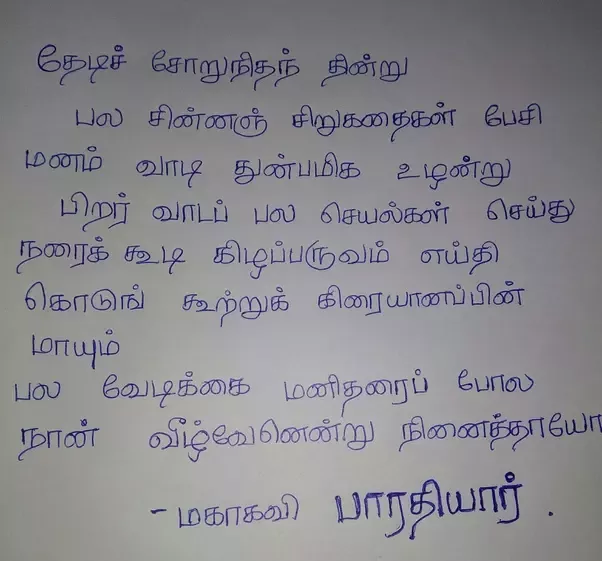 தேடிச் சோறுநிதந் தின்று
பல சின்னஞ் சிறுகதைகள் பேசி
மனம் வாடி துன்பமிக உழன்று
பிறர் வாடப் பல செயல்கள் செய்து
நரைக் கூடி கிழப்பருவம் எய்தி
கொடுங் கூற்றுக் கிரையானப்பின்
மாயும்
பல வேடிக்கை மனிதரைப் போல
நான் வீழ்வேனென்று நினைத்தாயோ
- மகாகவி பாரதியார் .